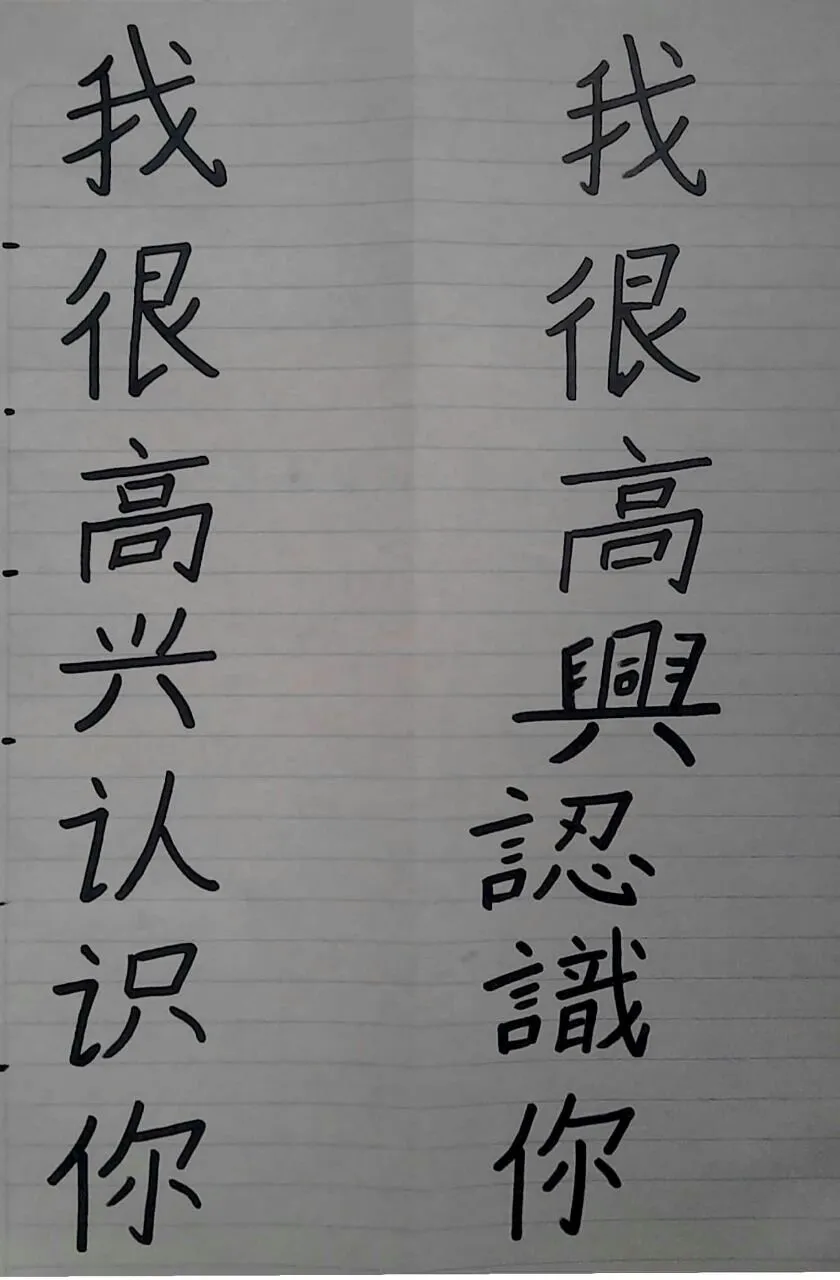 我很高兴认识你
我很高興認識你